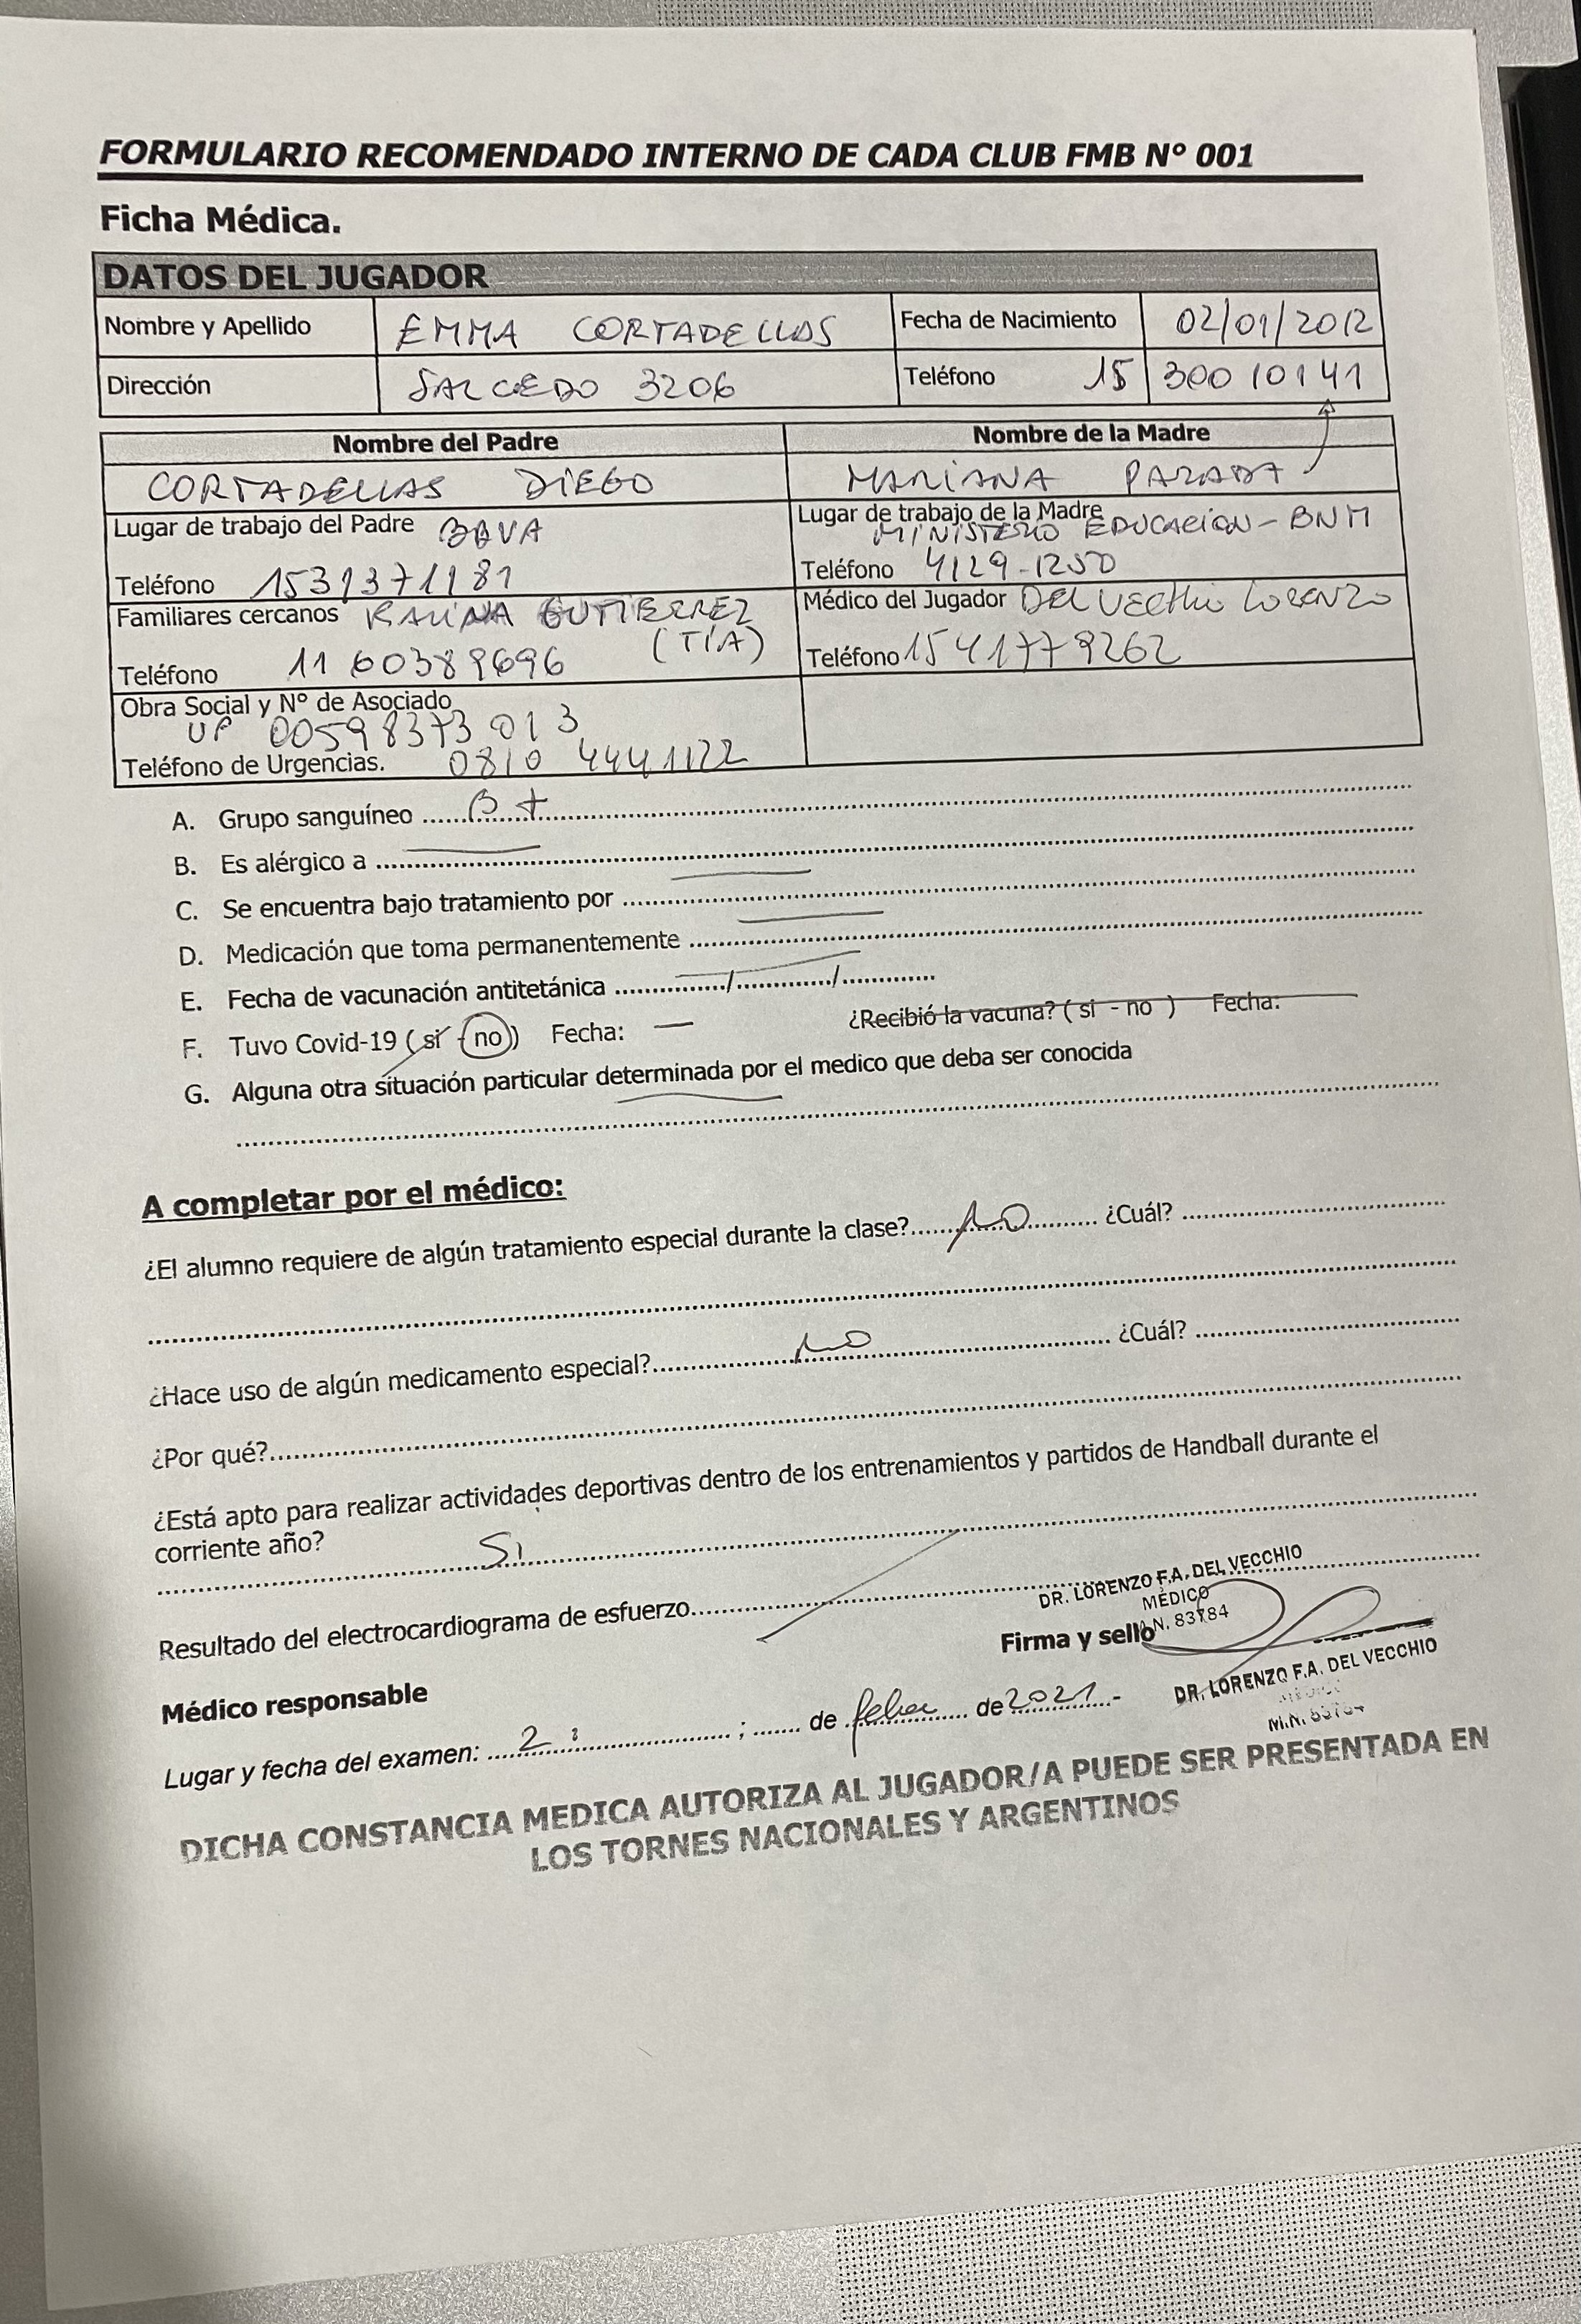 FORMULARIO RECOMENDADO INTERNO DE CADA CLUB FMB Nº 001
Ficha Médica.
DATOS DEL JUGADOR
Nombre y Apellido EMMA CORTADELLAS Fecha de Nacimiento 02/01/2012
Dirección SALCEDO 3206 Teléfono 15 30010141
Nombre del Padre Nombre de la Madre
CORTADELLAS DIEGO MARIANA PARADA
Lugar de trabajo del Padre BBVA Lugar de trabajo de la Madre
MINISTERIO EDUCACIÓN - BNM
Teléfono 1531371181 Teléfono 4129-1250
Familiares cercanos KARINA GUTIERREZ Médico del Jugador DEL VECCHIO LORENZO
(TÍA)
Teléfono 11 60389696 Teléfono 1541779262
Obra Social y Nº de Asociado
UP 00598373 01 3
Teléfono de Urgencias. 0810 4441122
A. Grupo sanguíneo B +
B. Es alérgico a ——
C. Se encuentra bajo tratamiento por ——
D. Medicación que toma permanentemente ——
E. Fecha de vacunación antitetánica ............/............/............
F. Tuvo Covid-19 ( si - no ) Fecha: — ¿Recibió la vacuna? ( si - no ) Fecha:
G. Alguna otra situación particular determinada por el medico que deba ser conocida
A completar por el médico:
¿El alumno requiere de algún tratamiento especial durante la clase? NO ¿Cuál?
¿Hace uso de algún medicamento especial? NO ¿Cuál?
¿Por qué?
¿Está apto para realizar actividades deportivas dentro de los entrenamientos y partidos de Handball durante el
corriente año?
Si
Resultado del electrocardiograma de esfuerzo
DR. LORENZO F.A. DEL VECCHIO
MÉDICO
M.N. 83784
Firma y sello
Médico responsable
DR. LORENZO F.A. DEL VECCHIO
MÉDICO
M.N. 83784
Lugar y fecha del examen: 2 ; ...... de febrer de 2021.-
DICHA CONSTANCIA MEDICA AUTORIZA AL JUGADOR/A PUEDE SER PRESENTADA EN
LOS TORNES NACIONALES Y ARGENTINOS